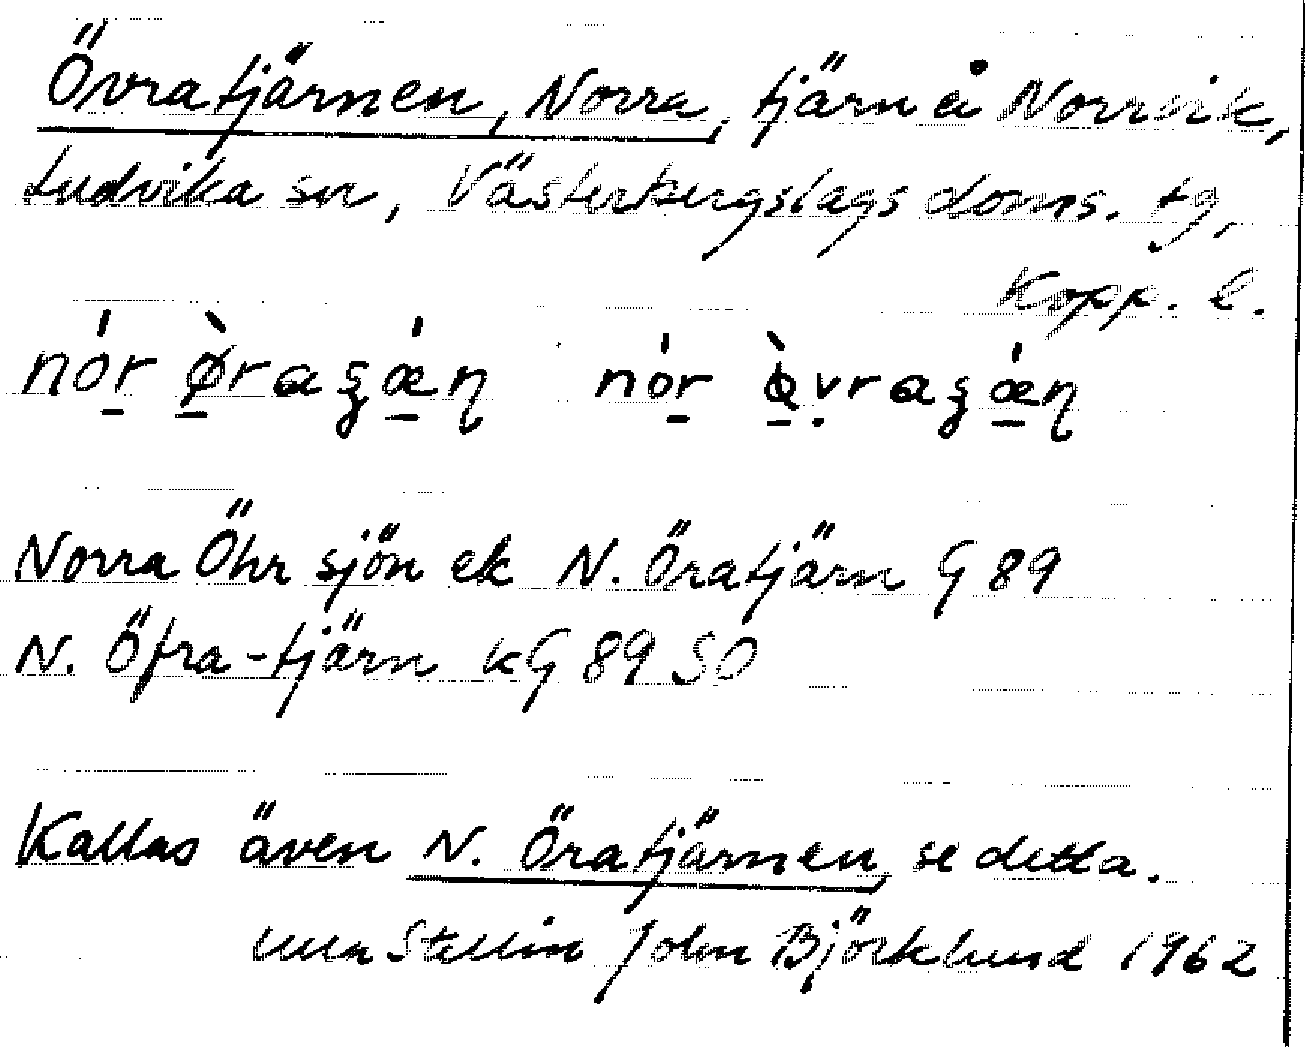 Övratjärnen, Norra, tjärn å Norrvik,
Ludvika sn, Västerbergslags doms. tg,
Kopp. l.
nór ø̀raʂǽɳ nór ø̀vraʂǽɳ
Norra Öhr sjön ek N. Öratjärn G 89
N. Öfra-tjärn kG 89 SO
Kallas även N. Öratjärnen, se detta.
Ulla Stellin John Björklund 1962